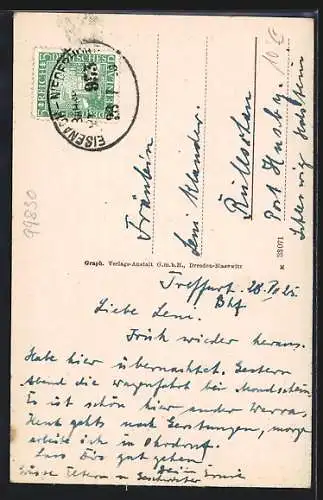 DEUTSCHES REICH
EISENACH - NIEDER
953
99830
10 €
Fräulein
Leni Klander.
Post Husby
Schleswig Holstein
Graph. Verlags-Anstalt G.m.b.H., Dresden-Blasewitz
33071
Treffurt 28.
Bhf
Liebe Leni.
Früh wieder heraus.
Habe hier übernachtet. Gestern
Abend die wagenfahrt bei Mondschein.
Es ist schön hier an der Werra.
Heut gehts nach Gerstungen, morgen
arbeite ich in Ohrdruf.
Lass Dirs gut gehen
Dein
Grüsse Eltern u Geschwister